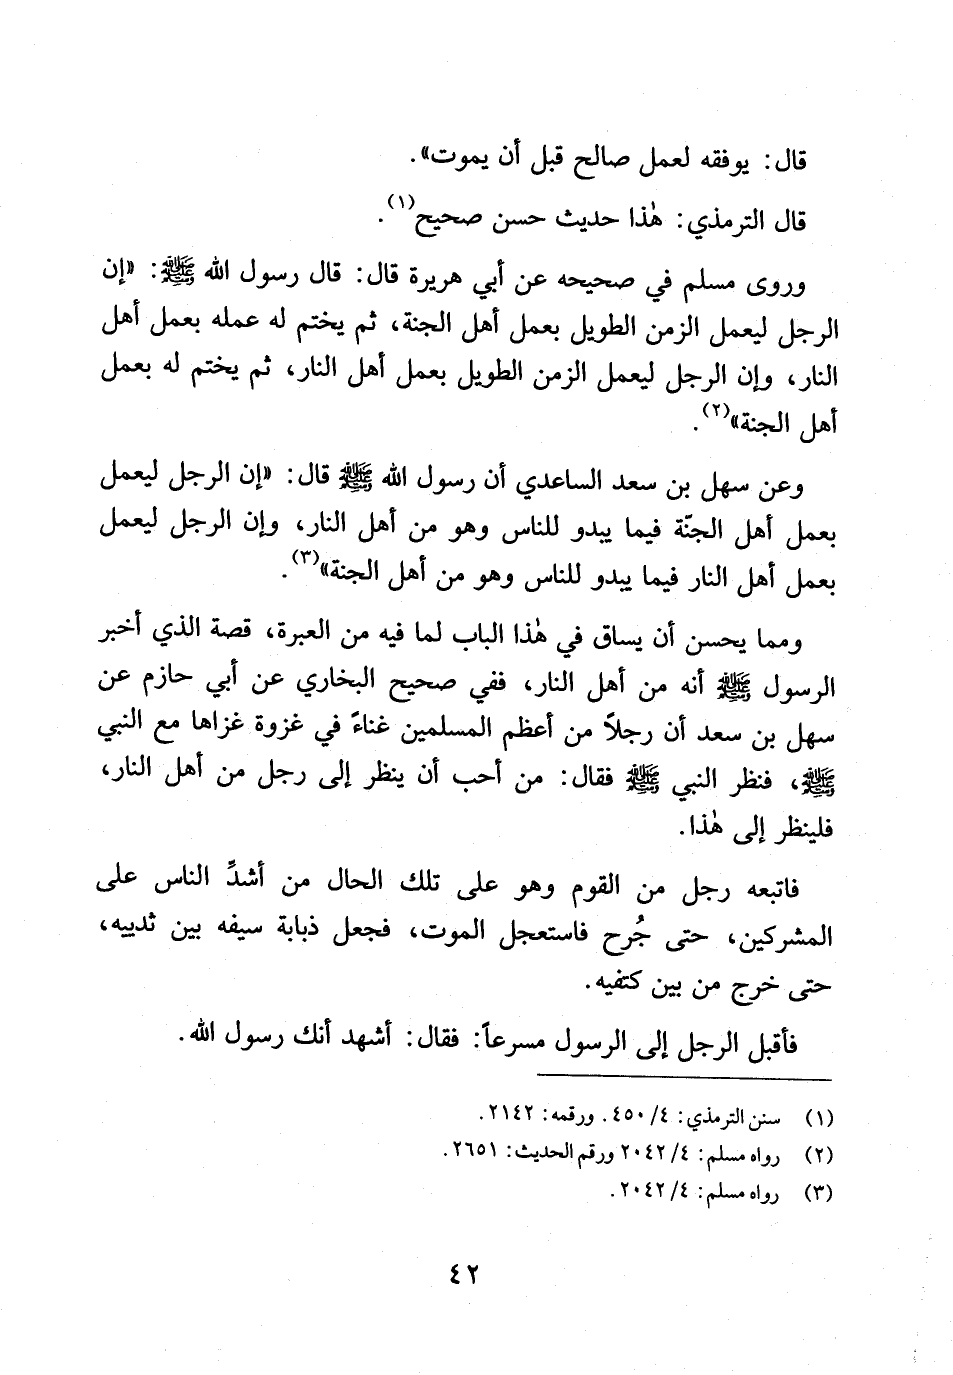 قال: يوفقه لعمل صالح قبل أن يموت».
قال الترمذي: هٰذا حديث حسن صحيح(١).
وروى مسلم في صحيحه عن أبي هريرة قال: قال رسول الله ﷺ: «إن
الرجل ليعمل الزمن الطويل بعمل أهل الجنة، ثم يختم له عمله بعمل أهل
النار، وإن الرجل ليعمل الزمن الطويل بعمل أهل النار، ثم يختم له بعمل
أهل الجنة»(٢).
وعن سهل بن سعد الساعدي أن رسول الله ﷺ قال: «إن الرجل ليعمل
بعمل أهل الجنّة فيما يبدو للناس وهو من أهل النار، وإن الرجل ليعمل
بعمل أهل النار فيما يبدو للناس وهو من أهل الجنة»(٣).
ومما يحسن أن يساق في هٰذا الباب لما فيه من العبرة، قصة الذي أخبر
الرسول ﷺ أنه من أهل النار، ففي صحيح البخاري عن أبي حازم عن
سهل بن سعد أن رجلاً من أعظم المسلمين غناءً في غزوة غزاها مع النبي
ﷺ، فنظر النبي ﷺ فقال: من أحب أن ينظر إلى رجل من أهل النار،
فلينظر إلى هٰذا.
فاتبعه رجل من القوم وهو على تلك الحال من أشدِّ الناس على
المشركين، حتى جُرح فاستعجل الموت، فجعل ذبابة سيفه بين ثدييه،
حتى خرج من بين كتفيه.
فأقبل الرجل إلى الرسول مسرعاً: فقال: أشهد أنك رسول الله.
(١) سنن الترمذي: ٤/ ٤٥٠. ورقمه: ٢١٤٢.
(٢) رواه مسلم: ٤/ ٢٠٤٢ ورقم الحديث: ٢٦٥١.
(٣) رواه مسلم: ٤/ ٢٠٤٢.
٤٢